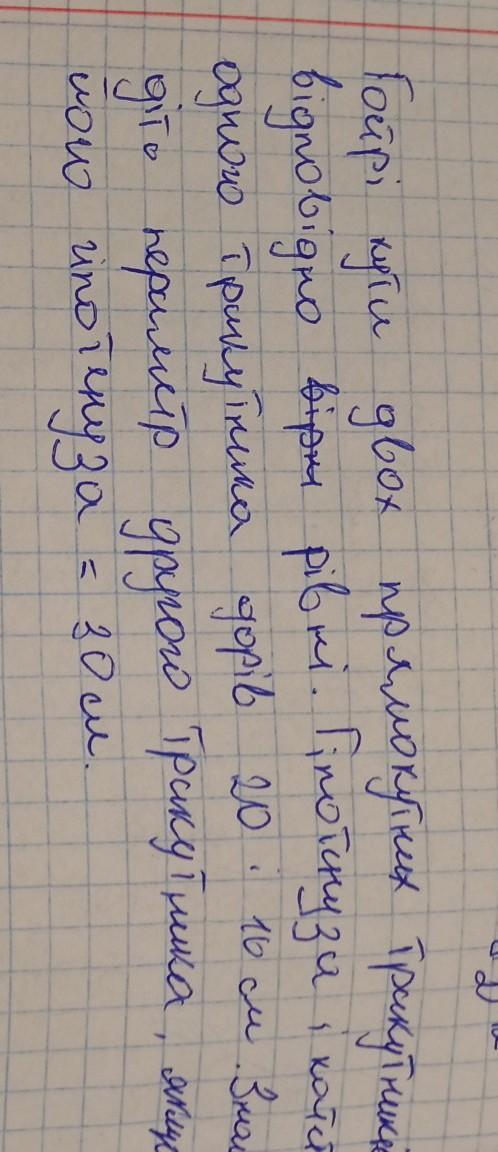 Гострі кути двох прямокутних трикутників
відповідно вірні рівні. Гіпотенуза і катет
одного трикутника дорів 20 і 16 см. Знай
діть периметр другого трикутника, якщо
його гіпотенуза = 30 см.